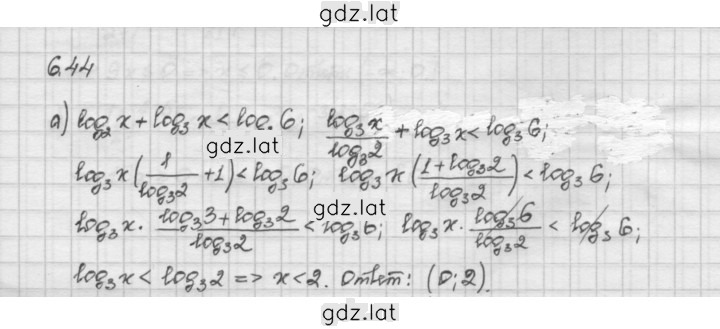 gdz.lat
6.44
а) log₂x + log₃x < log₃6; log₃x/log₃2 + log₃x < log₃6;
gdz.lat
log₃x(1/log₃2 + 1) < log₃6; log₃x((1 + log₃2)/log₃2) < log₃6;
gdz.lat
log₃x · (log₃3 + log₃2)/log₃2 < log₃6; log₃x · log₃6/log₃2 < log₃6;
log₃x < log₃2 => x < 2. Ответ: (0; 2).
gdz.lat